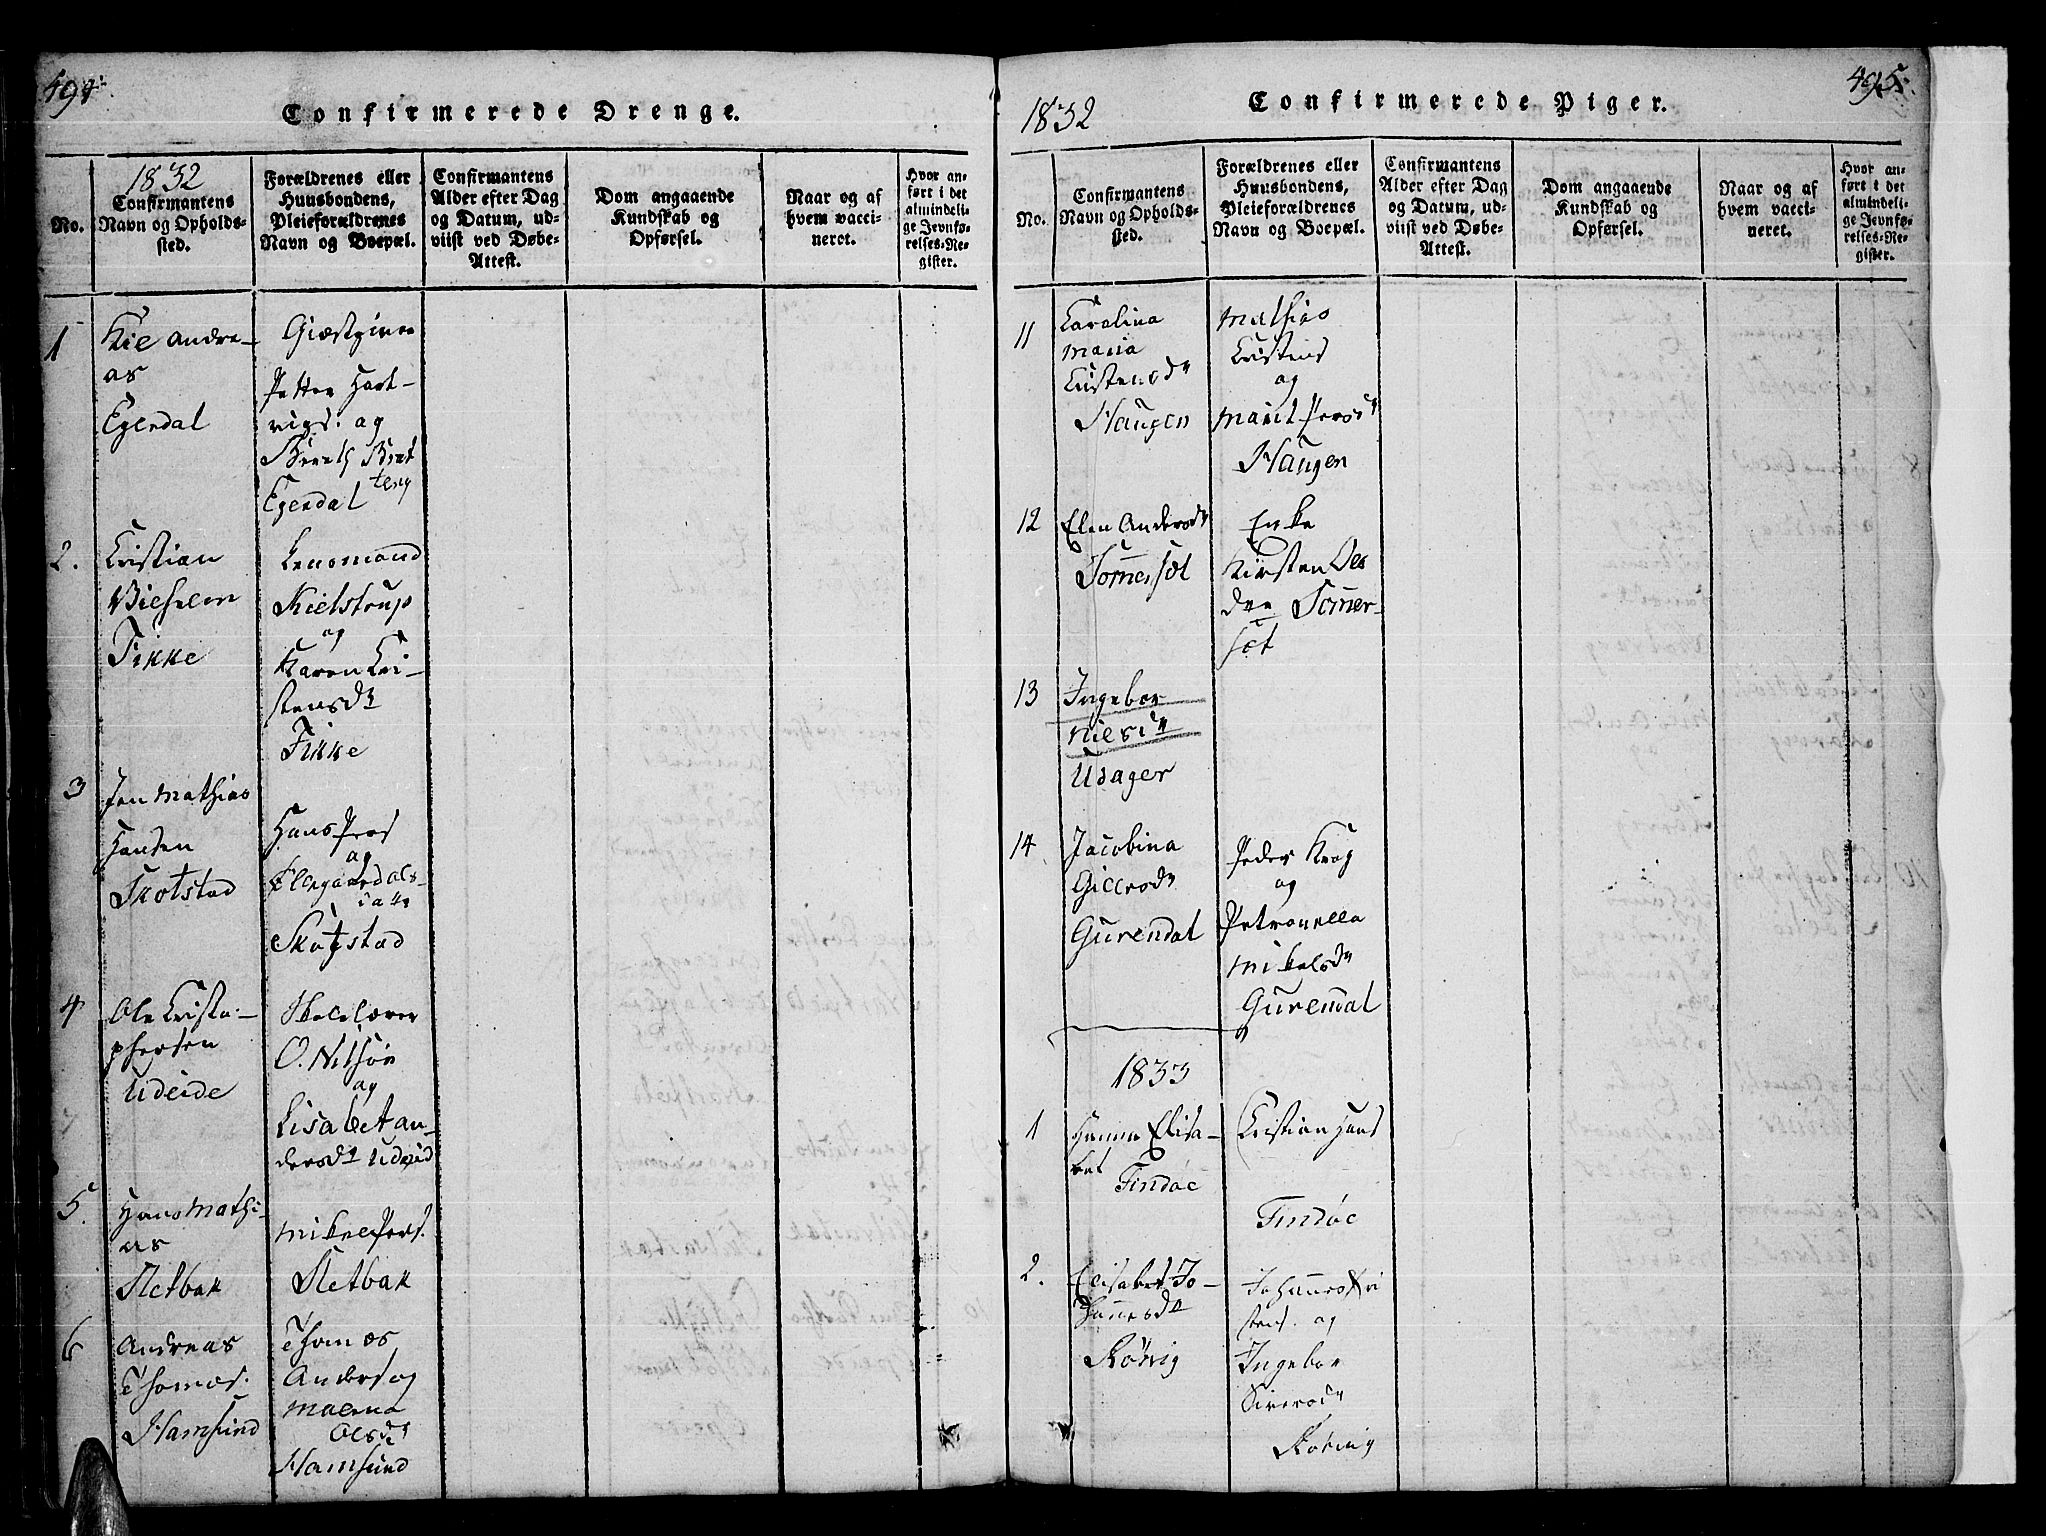 494.
Confirmerede Drenge.
No.
1832
Confirmantens
Navn og Opholds-
sted.
Forældrenes eller
Huusbondens,
Pleieforældrenes
Navn og Boepæl.
Confirmantens
Alder efter Dag
og Datum, ud-
viist ved Døbe-
Attest.
Dom angaaende
Kundskab og
Opførsel.
Naar og af
hvem vacci-
neret.
Hvor an-
ført i det
almindeli-
ge Jevnfø-
relses-Re-
gister.
1
Kie Andre-
as
Egendal
Giæstgiver
Petter Hart-
vigs: og
Bereth Brat
teng
Egendal
2.
Cristian
Vilhelm
Fikke
Lensmand
Kielstrup
og
Karen Cri-
stensdr
Fikke
3
Jen Mathias
Hansen
Skotstad
Hans Pers
og
Ellegaardals-
datter
Skotstad
4
Ole Cristo-
phersen
Udeide
Skolelærer
O. Nilsøn
og
Lisabet An-
dersdr Udeid
5.
Hans Mathi-
as
Sletbak
Mikel Pers.
Sletbak
6
Andreas
Thomas.
Hamsund
Thomas
Anders og
Marna
Olsdr
Hamsund
495.
1832
Confirmerede Piger.
No.
Confirmantens
Navn og Opholds-
sted.
Forældrenes eller
Huusbondens,
Pleieforældrenes
Navn og Boepæl.
Confirmantens
Alder efter Dag
og Datum, ud-
viist ved Døbe-
Attest.
Dom angaaende
Kundskab og
Opførsel.
Naar og af
hvem vacci-
neret.
Hvor an-
ført i det
almindeli-
ge Jevnfø-
relses-Re-
gister.
11
Carolina
Maria
Cristensdr
Haugen
Mathias
Cristens
og
Marit Persdr
Haugen
12
Elen Andersdr
Somerset
Enke
Kirsten Ols
dtr Somer-
set
13
Ingebor
Nielsdr
Udager
14
Jacobina
Gillersdr
Gurendal
Peder Krog
og
Petronella
Mikelsdr
Gurendal
1833
1
Hanna Elisa-
bet
Findøe
Cristian Hans
Findøe
2.
Elisabet Jo-
hannesdr
Rørvig
Johannes Kri
stens. og
Ingebor
Siversdr
Rørvig